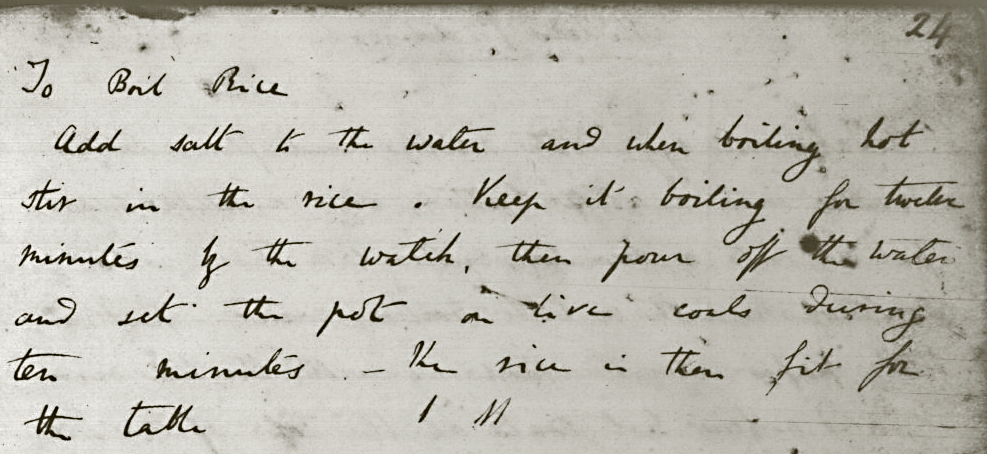 24
To Boil Rice
Add salt to the water and when boiling hot
stir in the rice. Keep it boiling for twelve
minutes by the watch, then pour off the water
and set the pot on live coals during
ten minutes - the rice is then fit for
the table